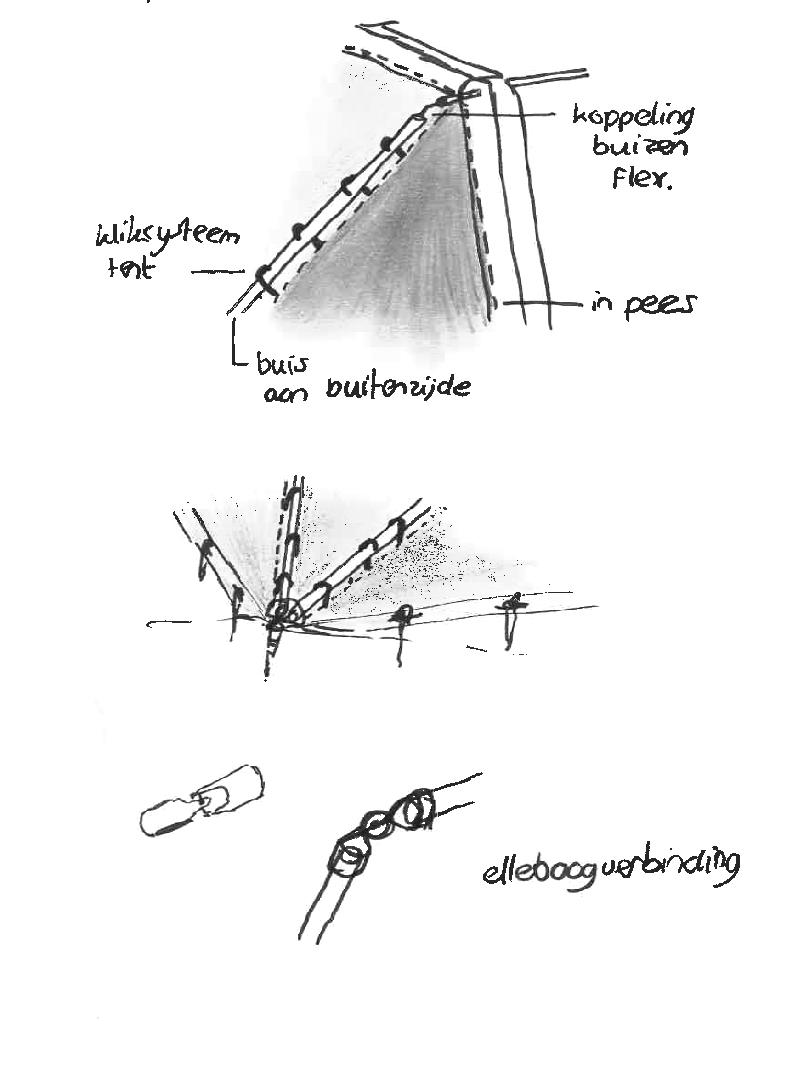 koppeling
buizen
flex.
kliksysteem
tent
in pees
buis
aan buitenzijde
elleboogverbinding